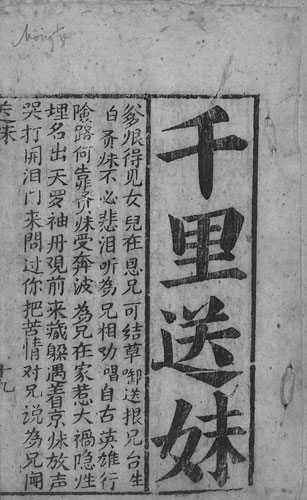 千里送妹
爹娘得见女兒在恩兄可结草啣送报兄台生
白 贤妹不必悲泪听為兄相劝唱自古英雄行
險路何靠贤妹受奔波為兄在家惹大禍隐性
埋名出天罗袖丹观前来藏躲遇着京妹放声
哭打开泪门来問过你把苦情对兄说為兄闻
送妹
十九